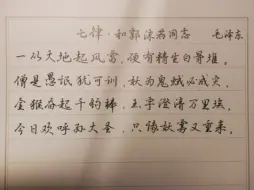 七律·和郭沫若同志 毛泽东
一从大地起风雷，便有精生白骨堆。
僧是愚氓犹可训，妖为鬼蜮必成灾。
金猴奋起千钧棒，玉宇澄清万里埃。
今日欢呼孙大圣，只缘妖雾又重来。